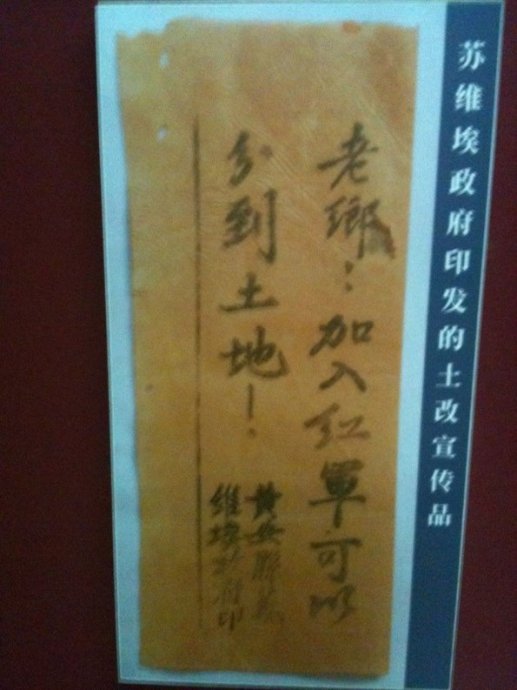 苏维埃政府印发的土改宣传品
老鄉：加入红軍可以
分到土地！
黄安縣蘇
維埃政府印